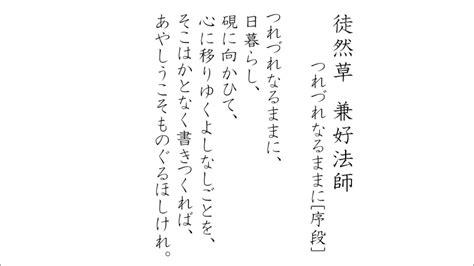 徒然草　兼好法師
つれづれなるままに[序段]
つれづれなるままに、
日暮らし、
硯に向かひて、
心に移りゆくよしなしごとを、
そこはかとなく書きつくれば、
あやしうこそものぐるほしけれ。